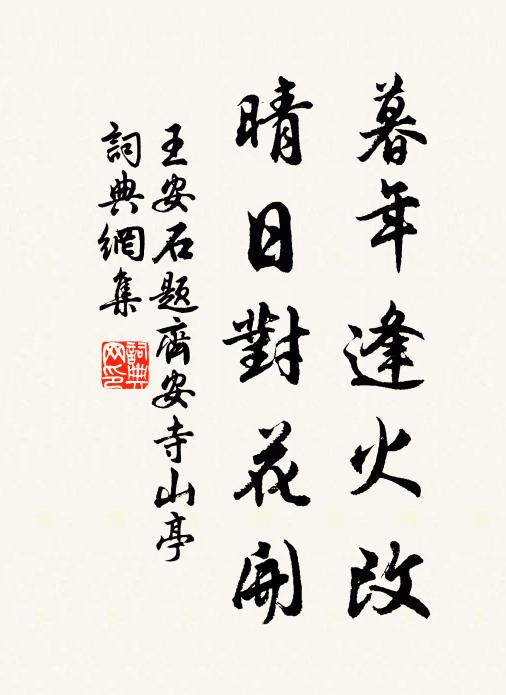 暮年逢火改
晴日對花開
王安石題齊安寺山亭
詞典網集
詞典网印